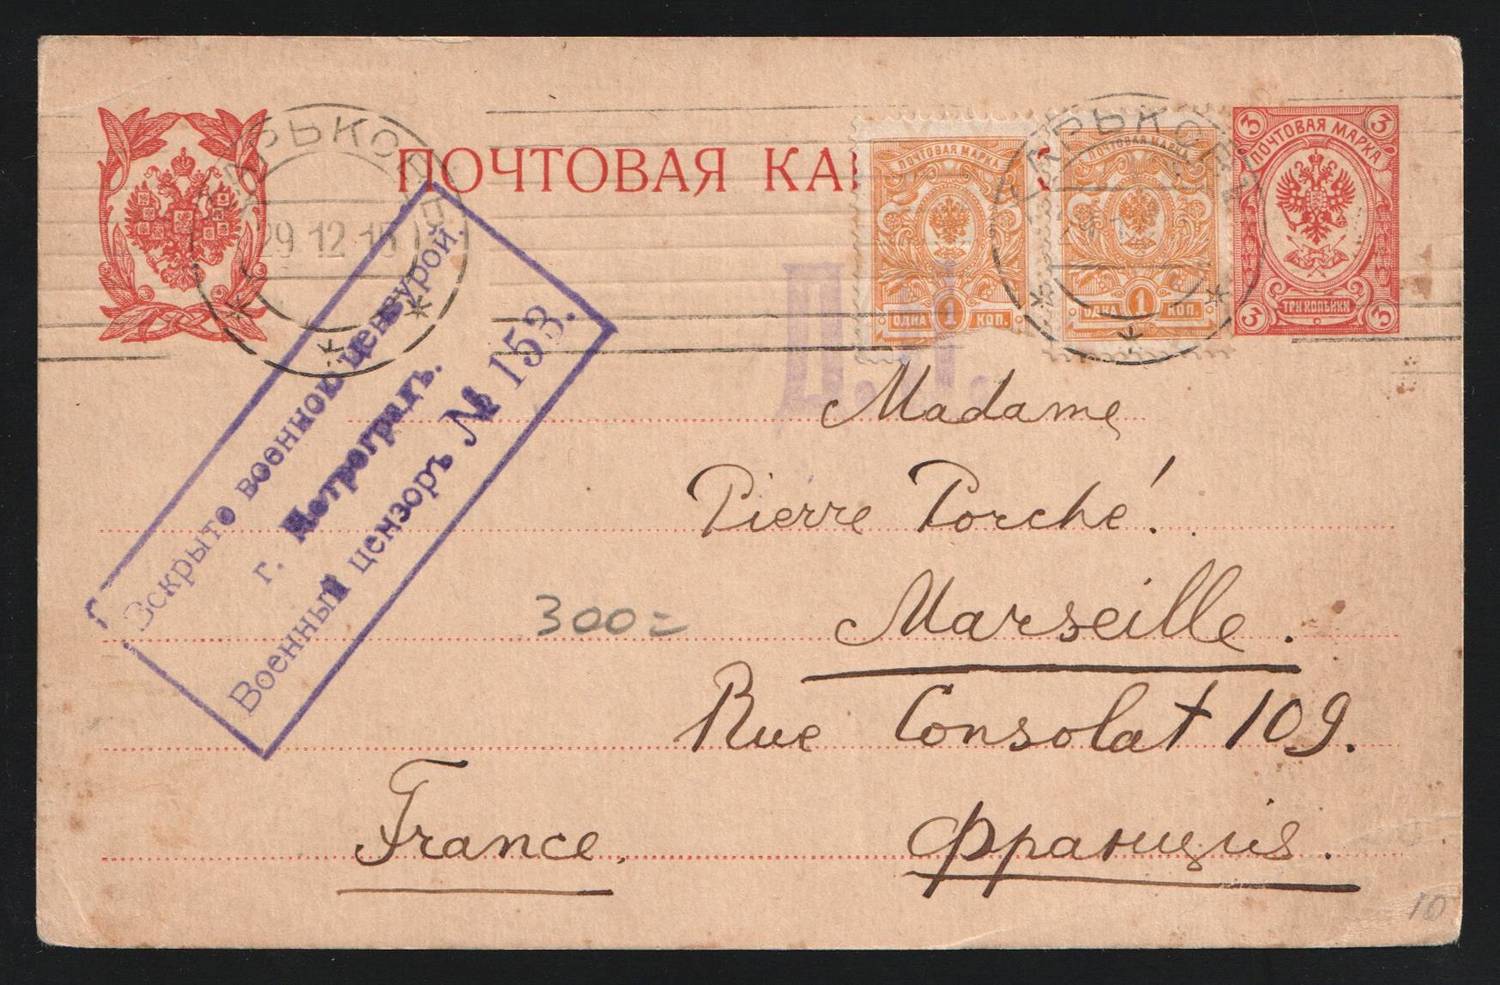 ПОЧТОВАЯ КА
ХАРЬКОВЪ
29 12 15
ПОЧТОВАЯ МАРКА
ОДНА 1 КОП.
ПОЧТОВАЯ МАРКА
ОДНА 1 КОП.
3 ПОЧТОВАЯ МАРКА 3
3 ТРИ КОПѢЙКИ 3
Вскрыто военною цензурой.
г. Петроградъ.
Военный цензоръ № 153.
Madame
Pierre Porché.
Marseille.
300=
Rue Consolat 109.
France.
Франція.
10